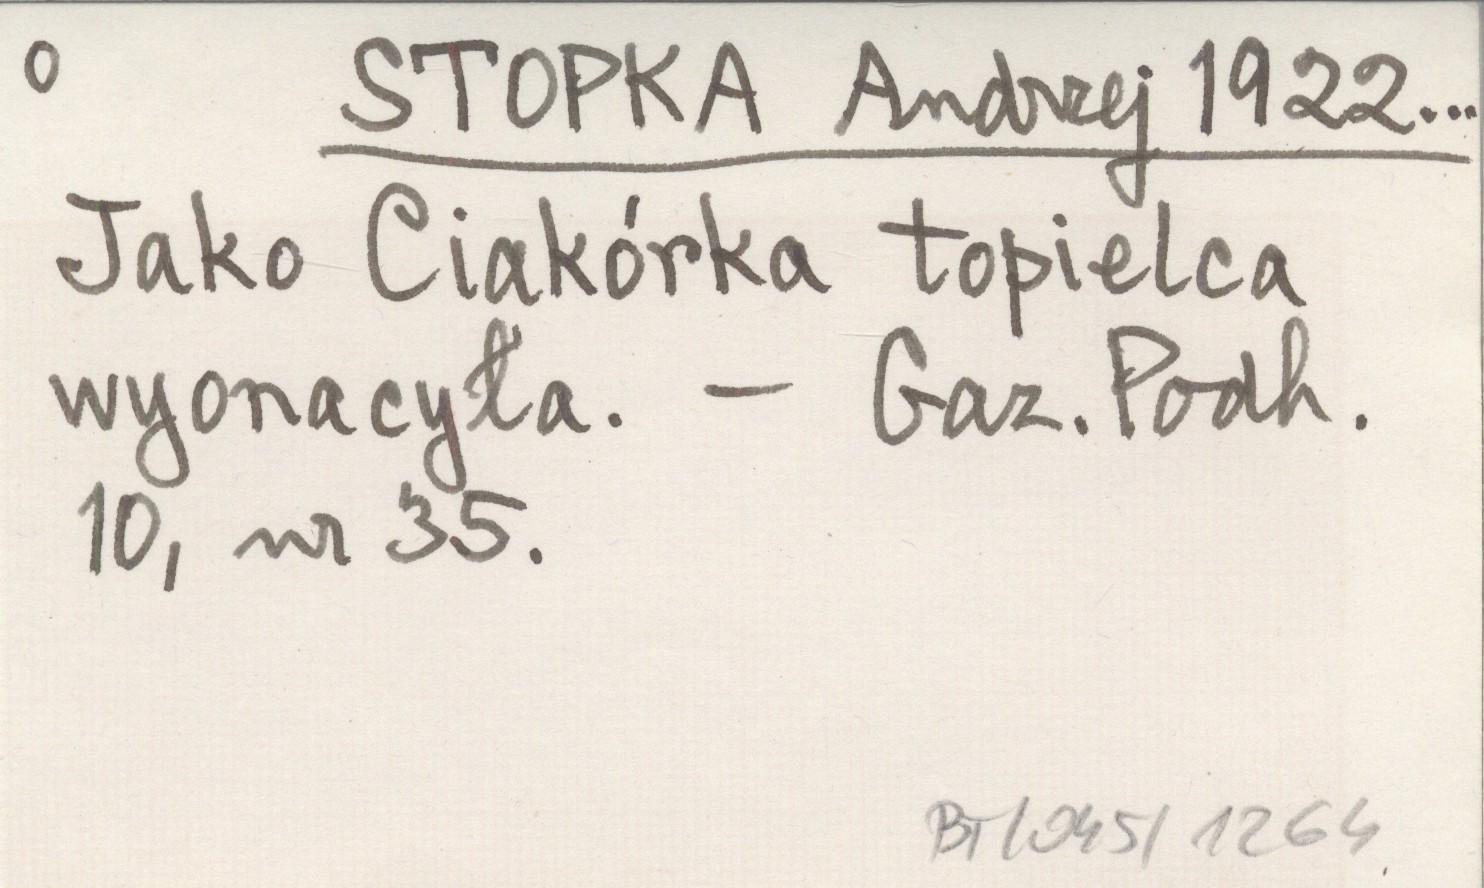 o STOPKA Andrzej 1922...
Jako Ciakórka topielca
wyonacyła. - Gaz. Podh.
10, nr 35.
BT/045/ 1264